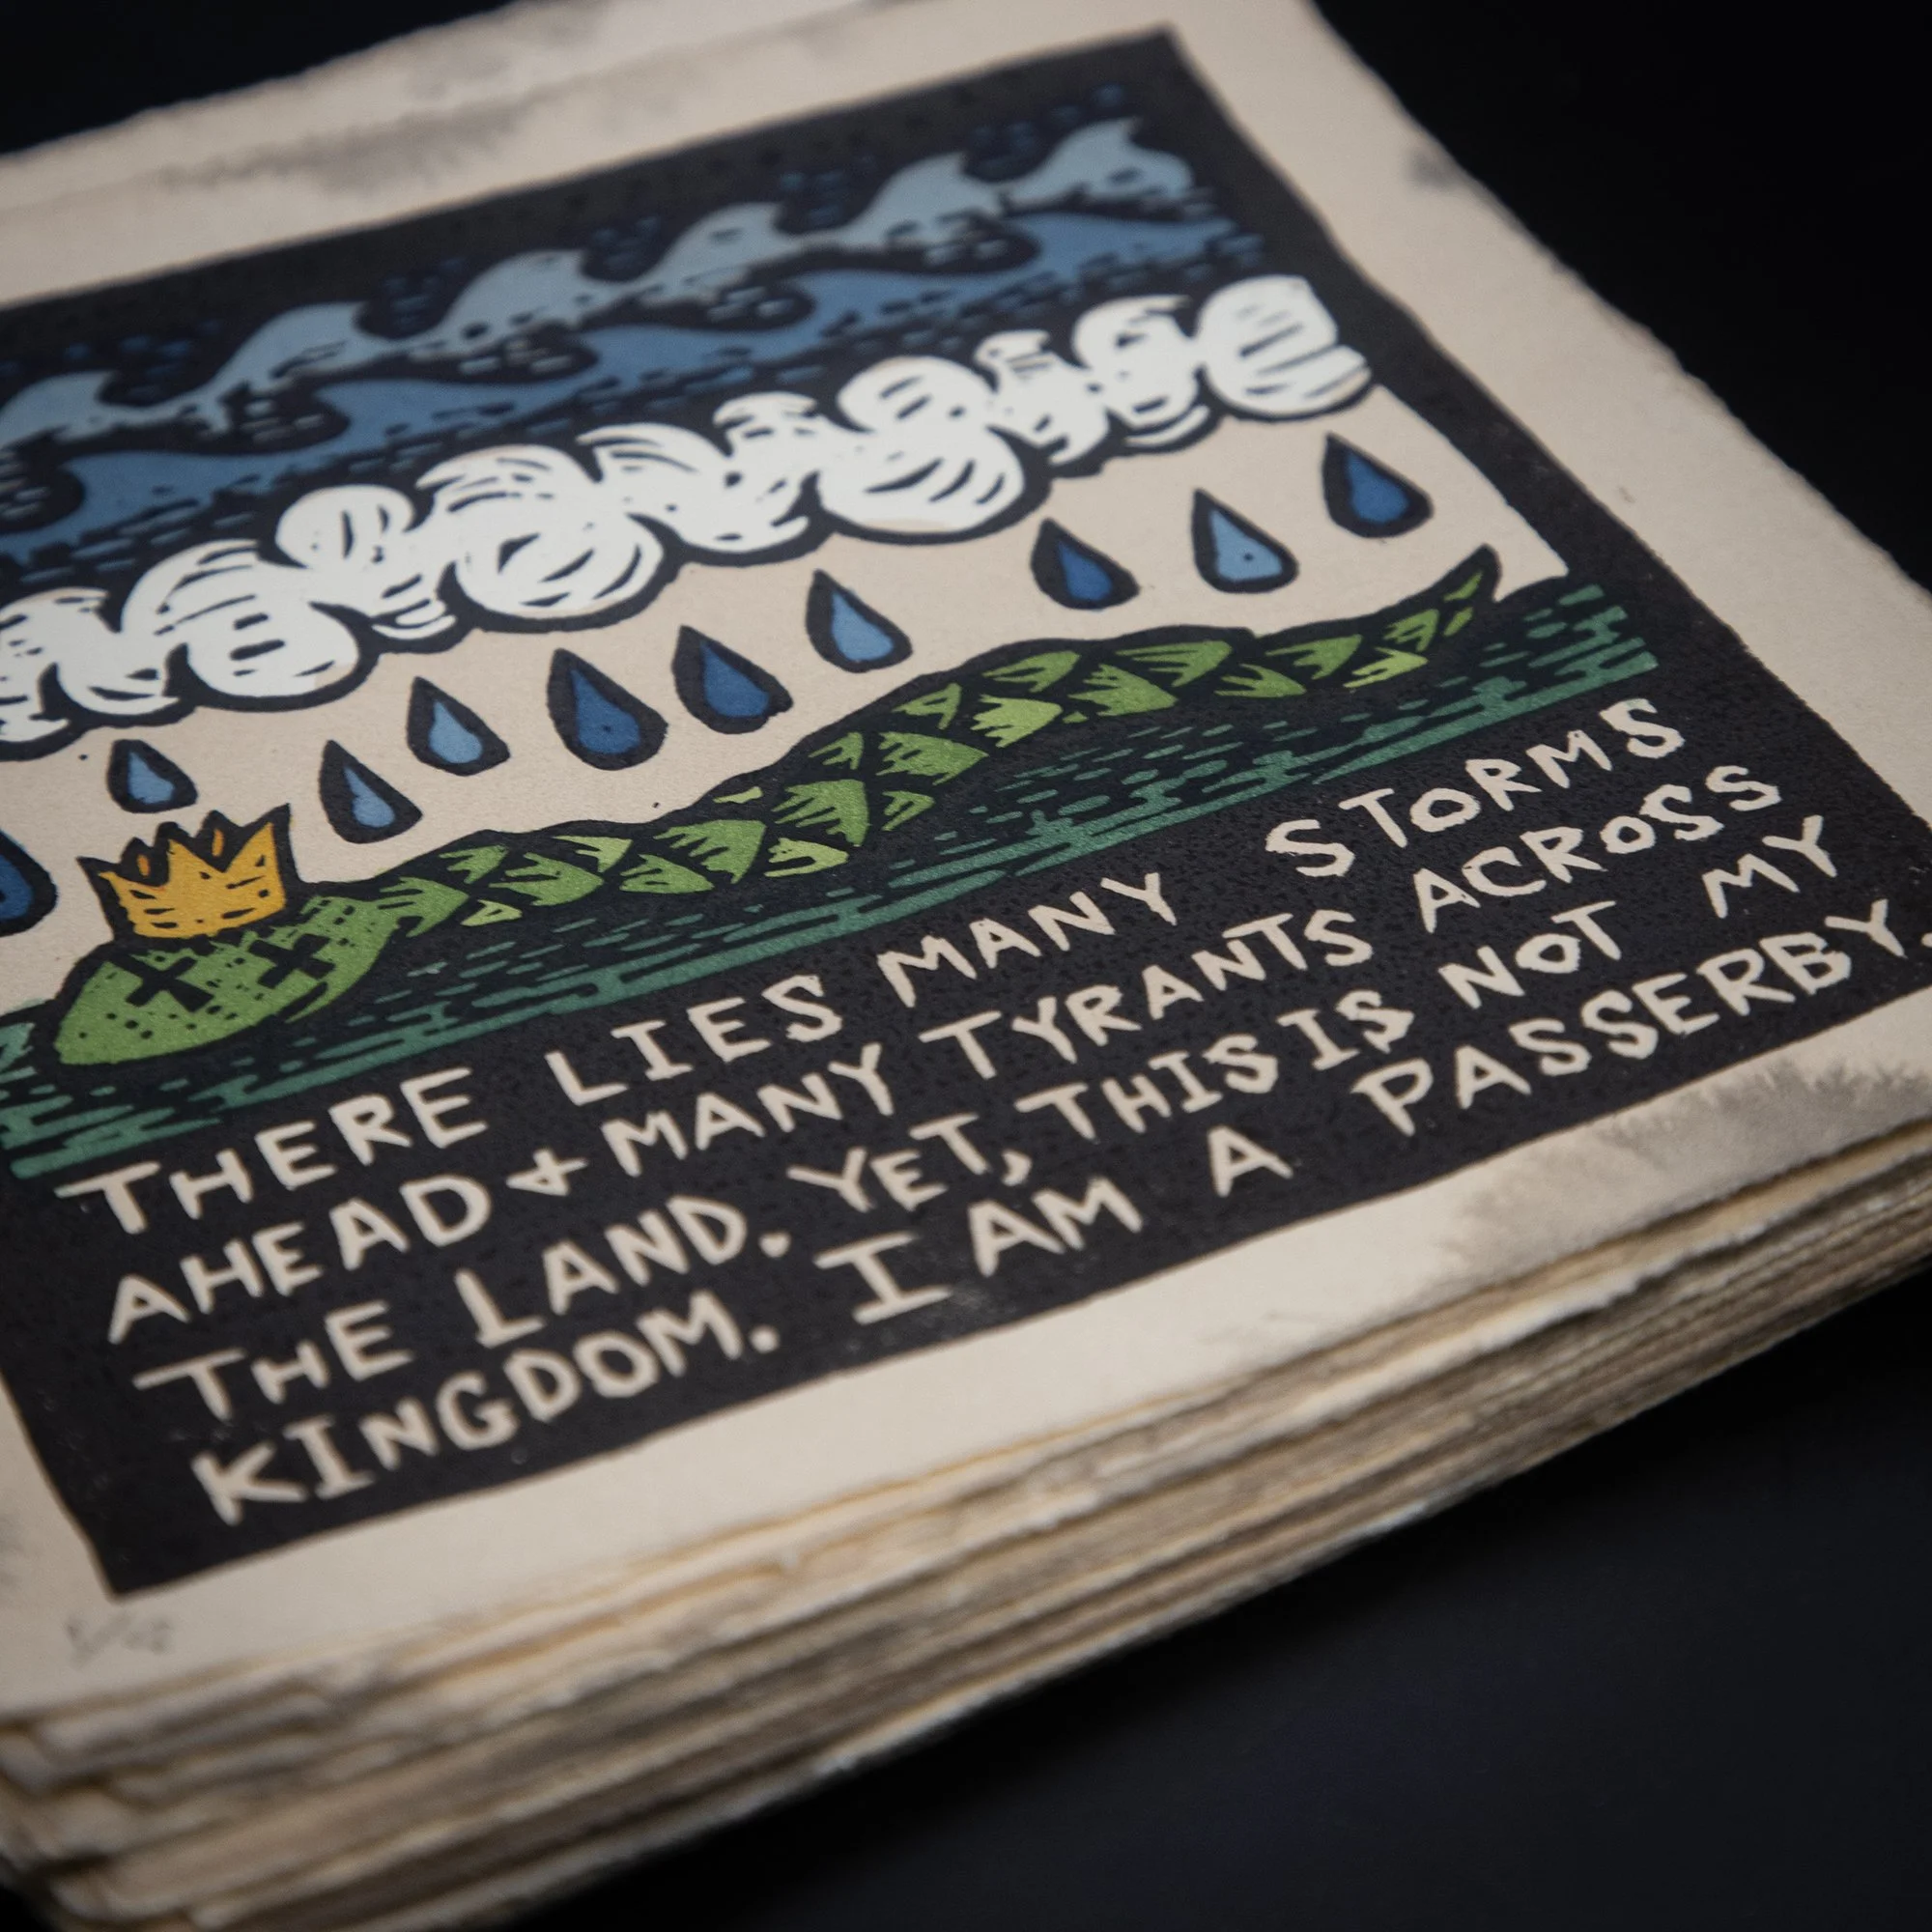 THERE LIES MANY STORMS
AHEAD & MANY TYRANTS ACROSS
THE LAND. YET, THIS IS NOT MY
KINGDOM. I AM A PASSERBY.